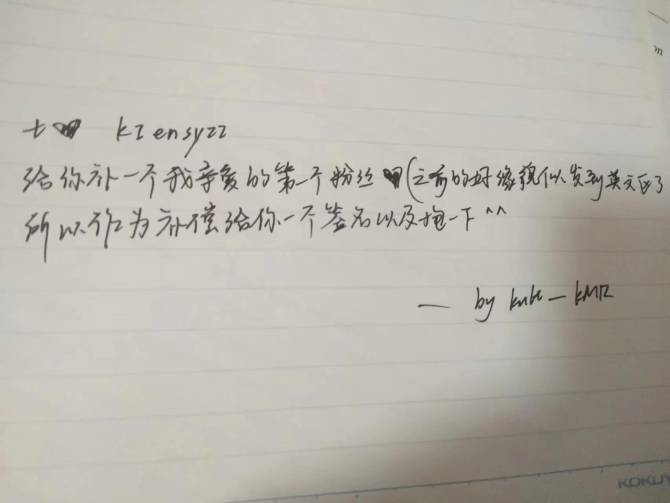 to KIensyzz
给你补一个我亲爱的第一个粉丝(之前的好像貌似发到英文区了
所以作为补偿给你一个签名以及抱一下^^
— by
KOKUY